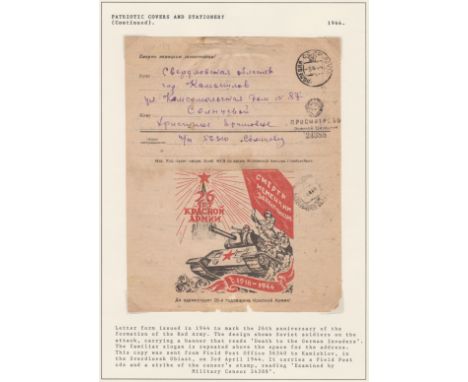 PATRIOTIC COVERS AND STATIONERY
(Continued). 1944.
Смерть немецким захватчикам!
Куда Свердловская область
гор. Камышлов
ул. Комсомольская Дом № 87
Кому Солнцевой
ПРОСМОТРЕНО
Военной Цензурой
24385
СМЕРТЬ
НЕМЕЦКИМ
ЗАХВАТЧИКАМ!
26
КРАСНОЙ
АРМИИ
1918-1944
Да здравствует 26-я годовщина Красной Армии!
Letter form issued in 1944 to mark the 26th anniversary of the
formation of the Red Army. The design shows Soviet soldiers on the
attack, carrying a banner that reads 'Death to the German Invaders'.
The familiar slogan is repeated above the space for the address.
This copy was sent from Field Post Office 56340 to Kamishlov, in
the Sverdlovsk Oblast, on 3rd April 1944. It carries a Field Post
cds and a strike of the censor's stamp, reading 'Examined by
Military Censor 24385'.